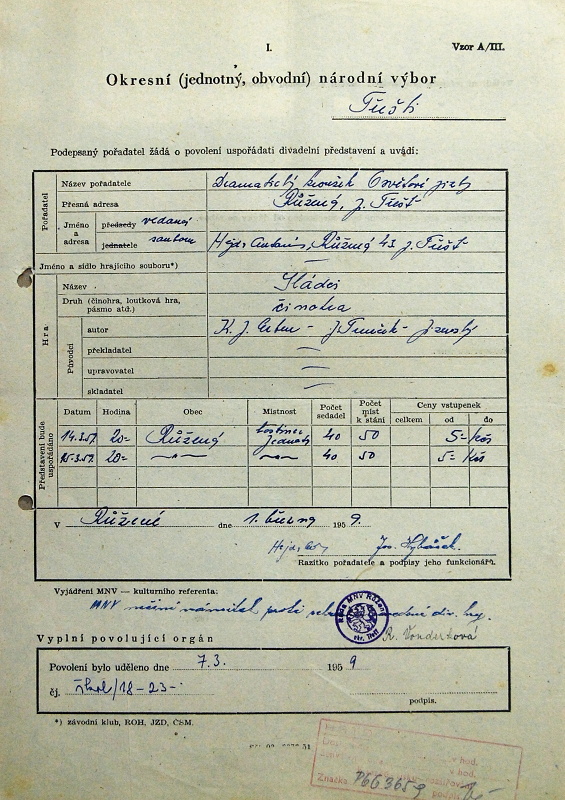 I. Vzor A/III.
Okresní (jednotný, obvodní) národní výbor
Třešti
Podepsaný pořadatel žádá o povolení uspořádati divadelní představení a uvádí:
Pořadatel
Název pořadatele Dramatický kroužek Osvětové
Přesná adresa Růžená, p. Třešť
Jméno a adresa
předsedy vedoucí
jednatele Růžená 43 p. Třešť
Jméno a sídlo hrajícího souboru*) —
Hra
Název Sládci
Druh (činohra, loutková hra, pásmo atd.) činohra
Původci
autor K. J. Erben —
překladatel —
upravovatel —
skladatel —
Představení bude uspořádáno
Datum Hodina Obec Místnost Počet sedadel Počet míst k stání Ceny vstupenek
celkem od do
14.3.59. 20= Růžená hostinec Jednota 40 50 5= Kčs
15.3.59. 20= —〃— —〃— 40 50 5= Kčs
V Růžené dne 1. března 1959.
Jos.
Razítko pořadatele a podpisy jeho funkcionářů.
Vyjádření MNV — kulturního referenta:
MNV nečiní námitek proti
Rada MNV Růžená
okr. Třešť
R. Vondertová
Vyplní povolující orgán
Povolení bylo uděleno dne 7.3. 1959
čj. Škol/18-23-
podpis.
*) závodní klub, ROH, JZD, ČSM.
v hod.
v hod.
Značka P6G3659
podpis